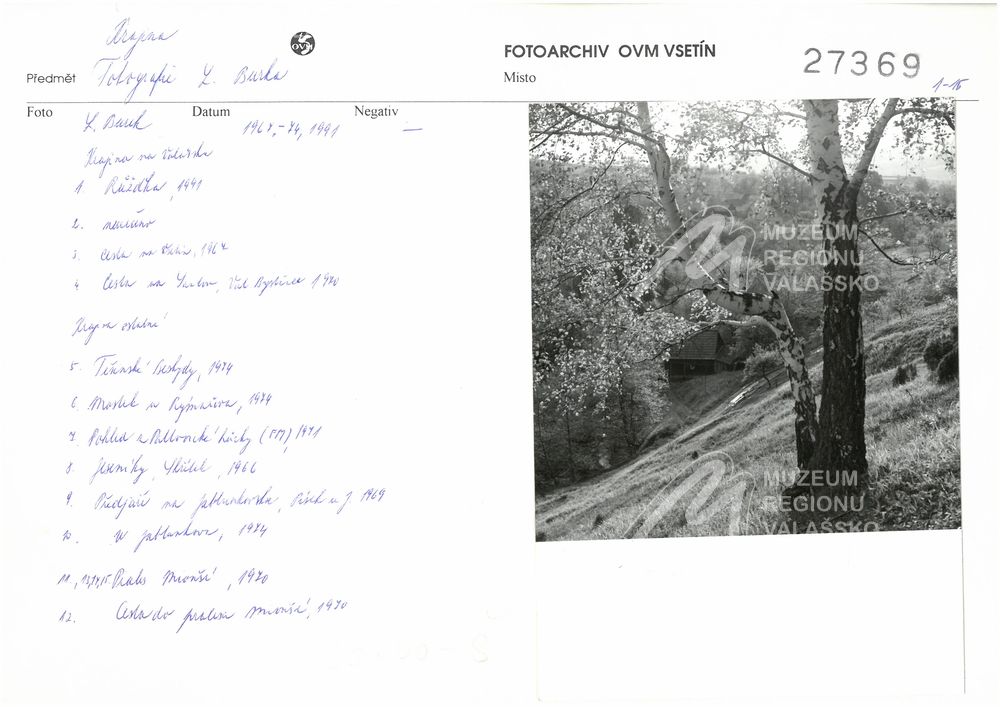 Krajina
OVM
FOTOARCHIV OVM VSETÍN
27369
1-15
Předmět Fotografie L. Burka
Místo
Foto L. Burek Datum 1967,-74, 1991 Negativ —
Krajina na Valašsku
1. Růžďka, 1991
2. neurčeno
3. Cesta na Vsetín, 1967
4. Cesta na Santov, Val Bystřice 1970
Krajina ostatní
5. Těšínské Beskydy, 1974
6. Mostek u Rýmařova, 1974
7. Pohled z Butořanky (FM), 1971
8. Jeseníky, Skřítek, 1966
9. Předjaří na Jablunkovsku, Písek u J. 1969
10. U Jablunkova, 1974
11., 13,14,15. Prales Mionší, 1970
12. Cesta do pralesa Mionší, 1970
MUZEUM
REGIONU
VALAŠSKO
MUZEUM
REGIONU
VALAŠSKO